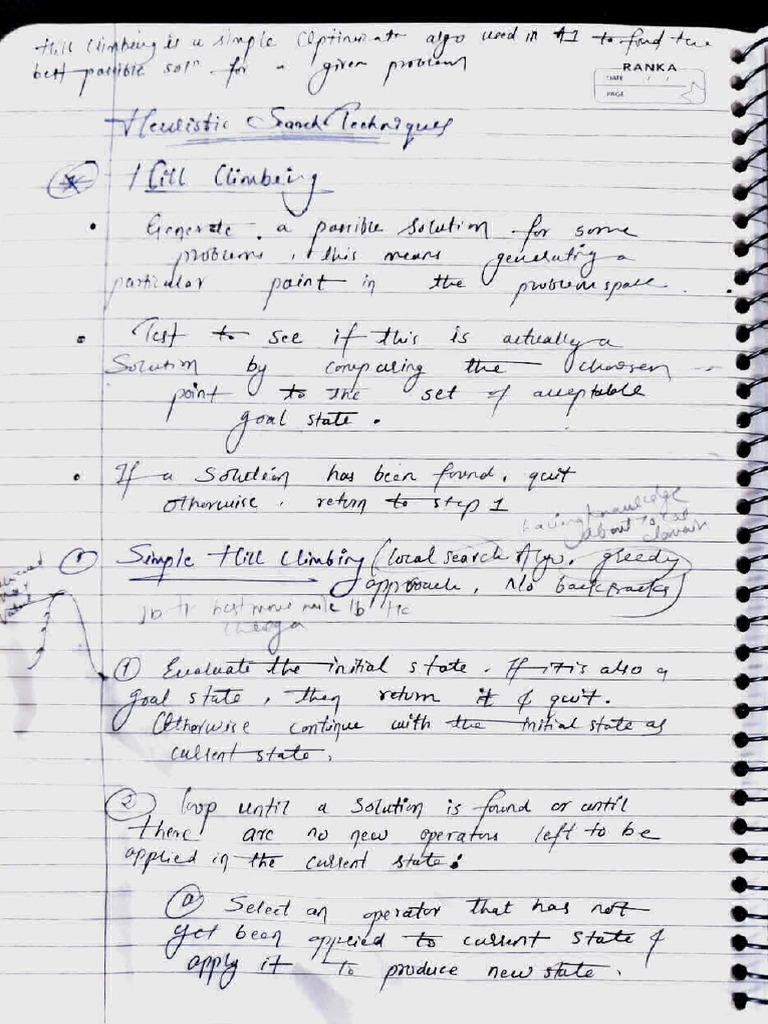 Hill Climbing is a simple Optimizat algo used in AI to find the
best possible solⁿ for a given problem
RANKA
DATE / /
PAGE
Heuristic Search Techniques
Hill Climbing
• Generate a possible solution for some
problems, this means generating a
particular point in the problem space.
• Test to see if this is actually a
Solution by comparing the choosen
point to the set of acceptable
goal state.
• If a Solution has been found, quit
otherwise, return to step 1
having knowledge
about local
domain
① Simple Hill Climbing (local search Algo, greedy
approach, No backtracks)
best move mile
① Evaluate the initial state. If it is also a
goal state, then return it & quit.
Otherwise continue with the initial state as
current state.
② loop until a Solution is found or until
there are no new operators left to be
applied in the current state:
ⓐ Select an operator that has not
yet been applied to current state &
apply it to produce new state.